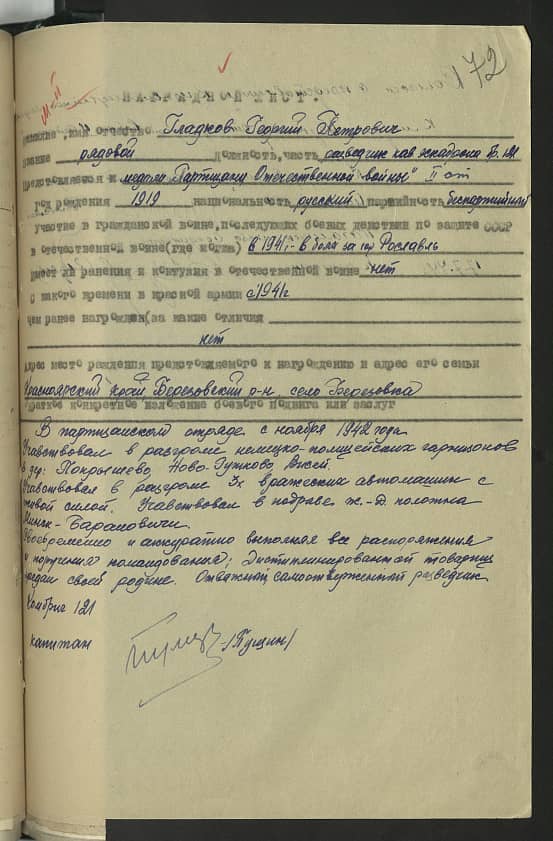 172
Н А Г Р А Д Н О Й Л И С Т.
Фамилие, имя отчество Гладков Георгий Петрович
Звание рядовой Должность, часть разведчик кав эскадрона
Представляется к медали "Партизану Отечественной войны" II ст
Год рождения 1919 национальность русский партийность беспартийный
Участие в гражданской воине, последующих боевых действии по защите СССР
в отечественной воине (где когда) в 1941 г- в боях за гор Рославль
Имеет ли ранения и контузия в отечественной воине нет
С какого времени в красной армии с 1941г
Чем ранее награжден (за какие отличия
нет
Адрес место раждения представляемого к награждению и адрес его семьи
Красноярский край Березовский р-н село Березовка
Краткое конкретное изложение боевого подвига или заслуг
В партизанском отряде с ноября 1942 года
Учавствовал в разгроме немецко-полицейских гарнизонов
в дер: Покрышево, Ново-Гутково
Учавствовал в разгроме 3х вражеских автомашин с
живой силой. Учавствовал в подрыве ж.-д. полотна
Минск-Барановичи.
Своевременно и аккуратно выполнял все распоряжения
и поручения командования; Дисциплинированный товарищ
предан своей родине. Отважный самоотверженный разведчик
Комбриг 121
капитан /Пущин/